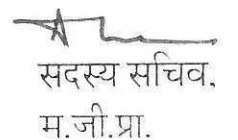 सदस्य सचिव.
म.जी.प्रा.